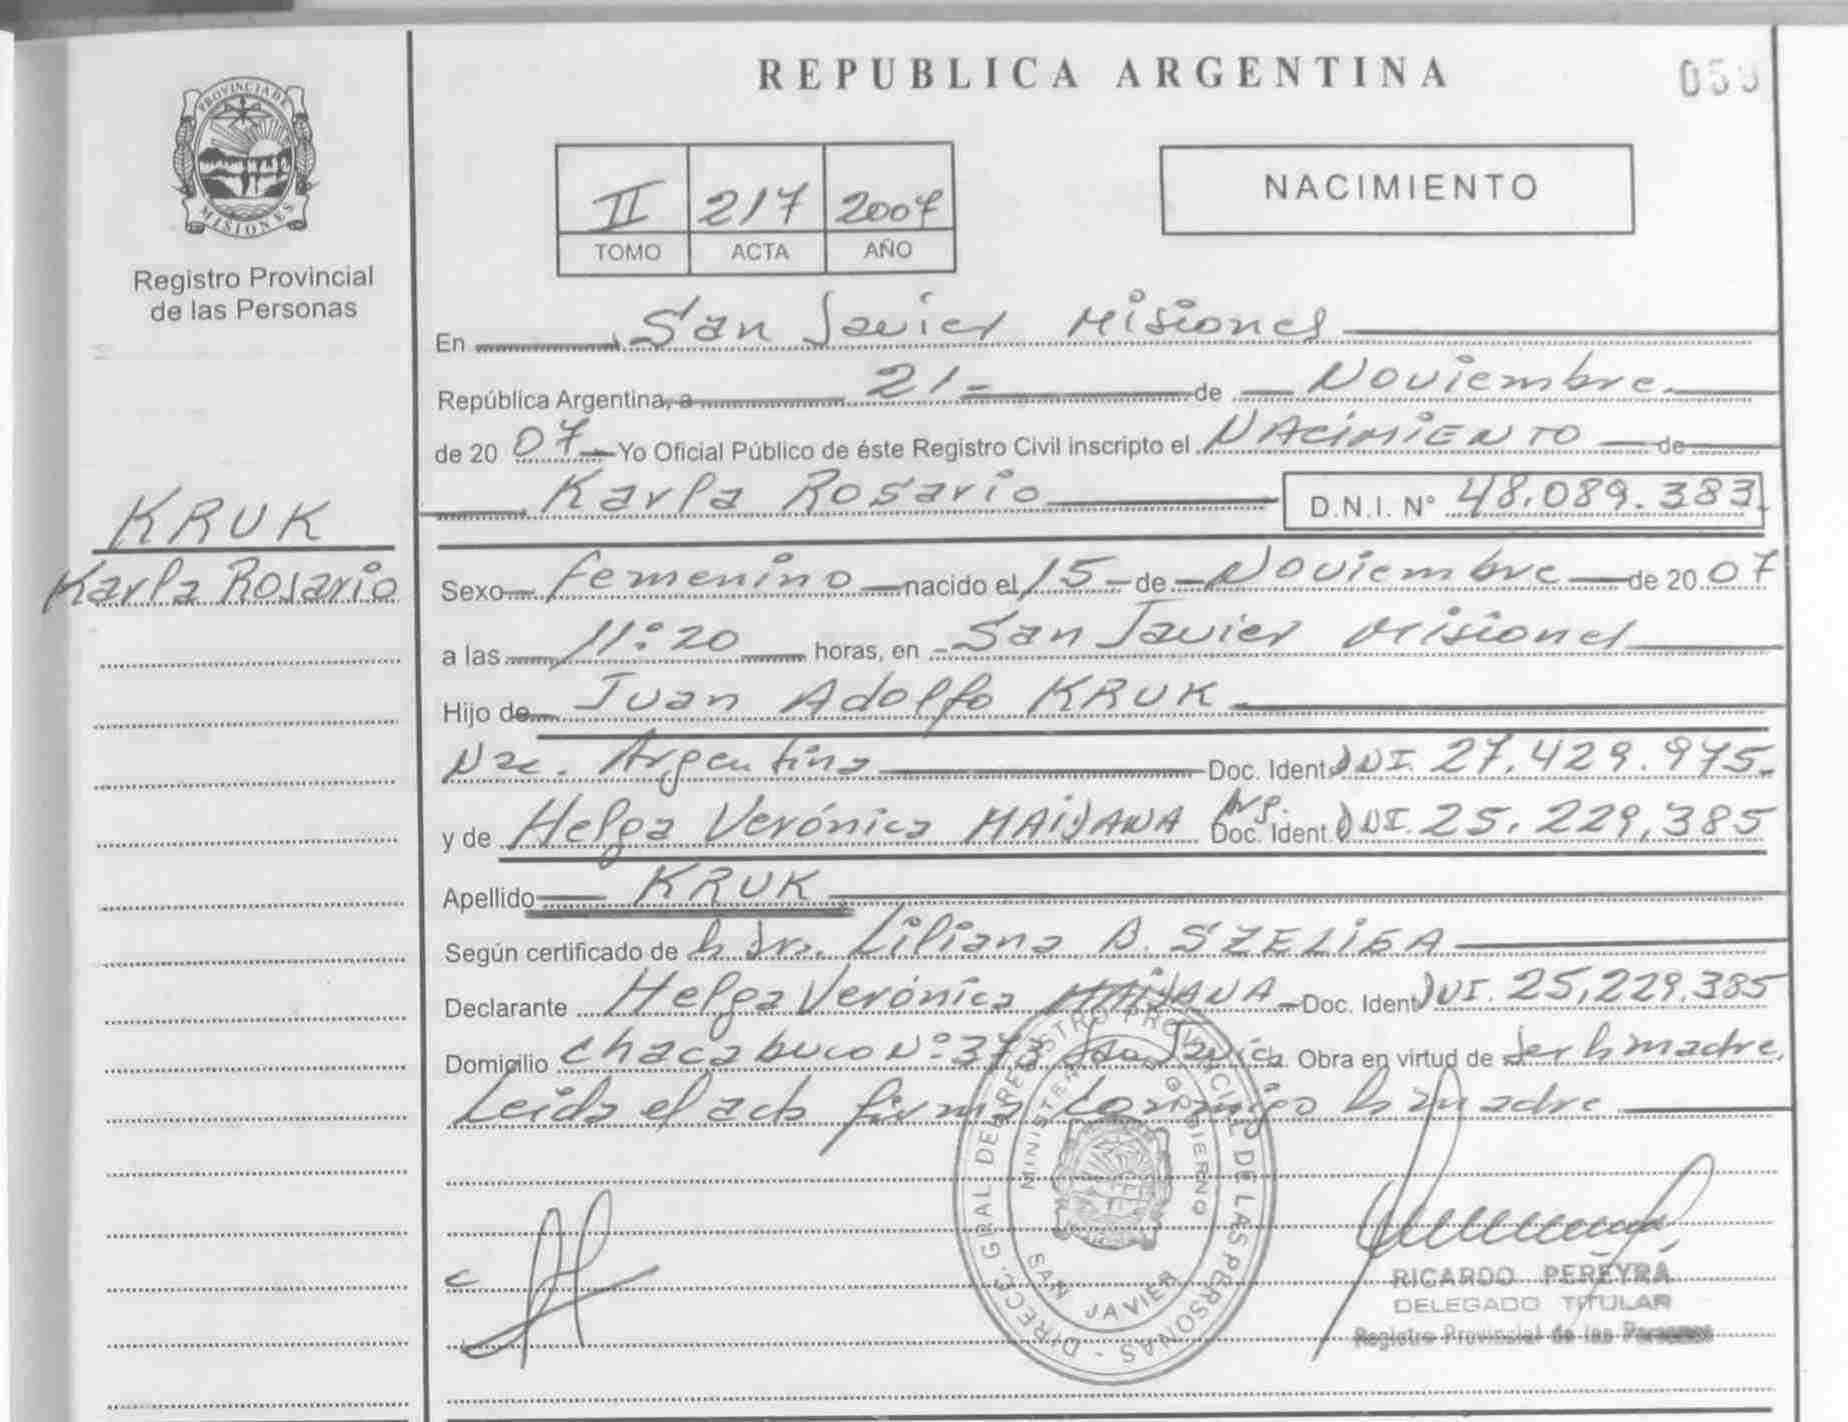 REPUBLICA ARGENTINA
059
PROVINCIA DE
MISIONES
Registro Provincial
de las Personas
II 217 2007
TOMO ACTA AÑO
NACIMIENTO
En San Javier Misiones
República Argentina, a 21- de Noviembre
de 20 07 Yo Oficial Público de éste Registro Civil inscripto el NACIMIENTO de
Karla Rosario D.N.I. N° 48.089.383
KRUK
Karla Rosario
Sexo femenino nacido el 15 de Noviembre de 20 07
a las 11:20 horas, en San Javier Misiones
Hijo de Juan Adolfo KRUK
Nac. Argentina Doc. Ident DNI. 27.429.975
y de Helga Verónica MAIJANA Arg. Doc. Ident. DNI. 25.229.385
Apellido KRUK
Según certificado de la Dra. Liliana B. SZELIGA
Declarante Helga Verónica MAIJANA Doc. Ident DNI. 25.229.385
Domicilio Chacabuco N° 373 San Javier Obra en virtud de ser la madre,
Leida el acta firma conmigo la madre
DIRECC. GRAL DEL REGISTRO PROVINCIAL DE LAS PERSONAS -
MINISTERIO GOBIERNO
SAN JAVIER
RICARDO PEREYRA
DELEGADO TITULAR
Registro Provincial de las Personas